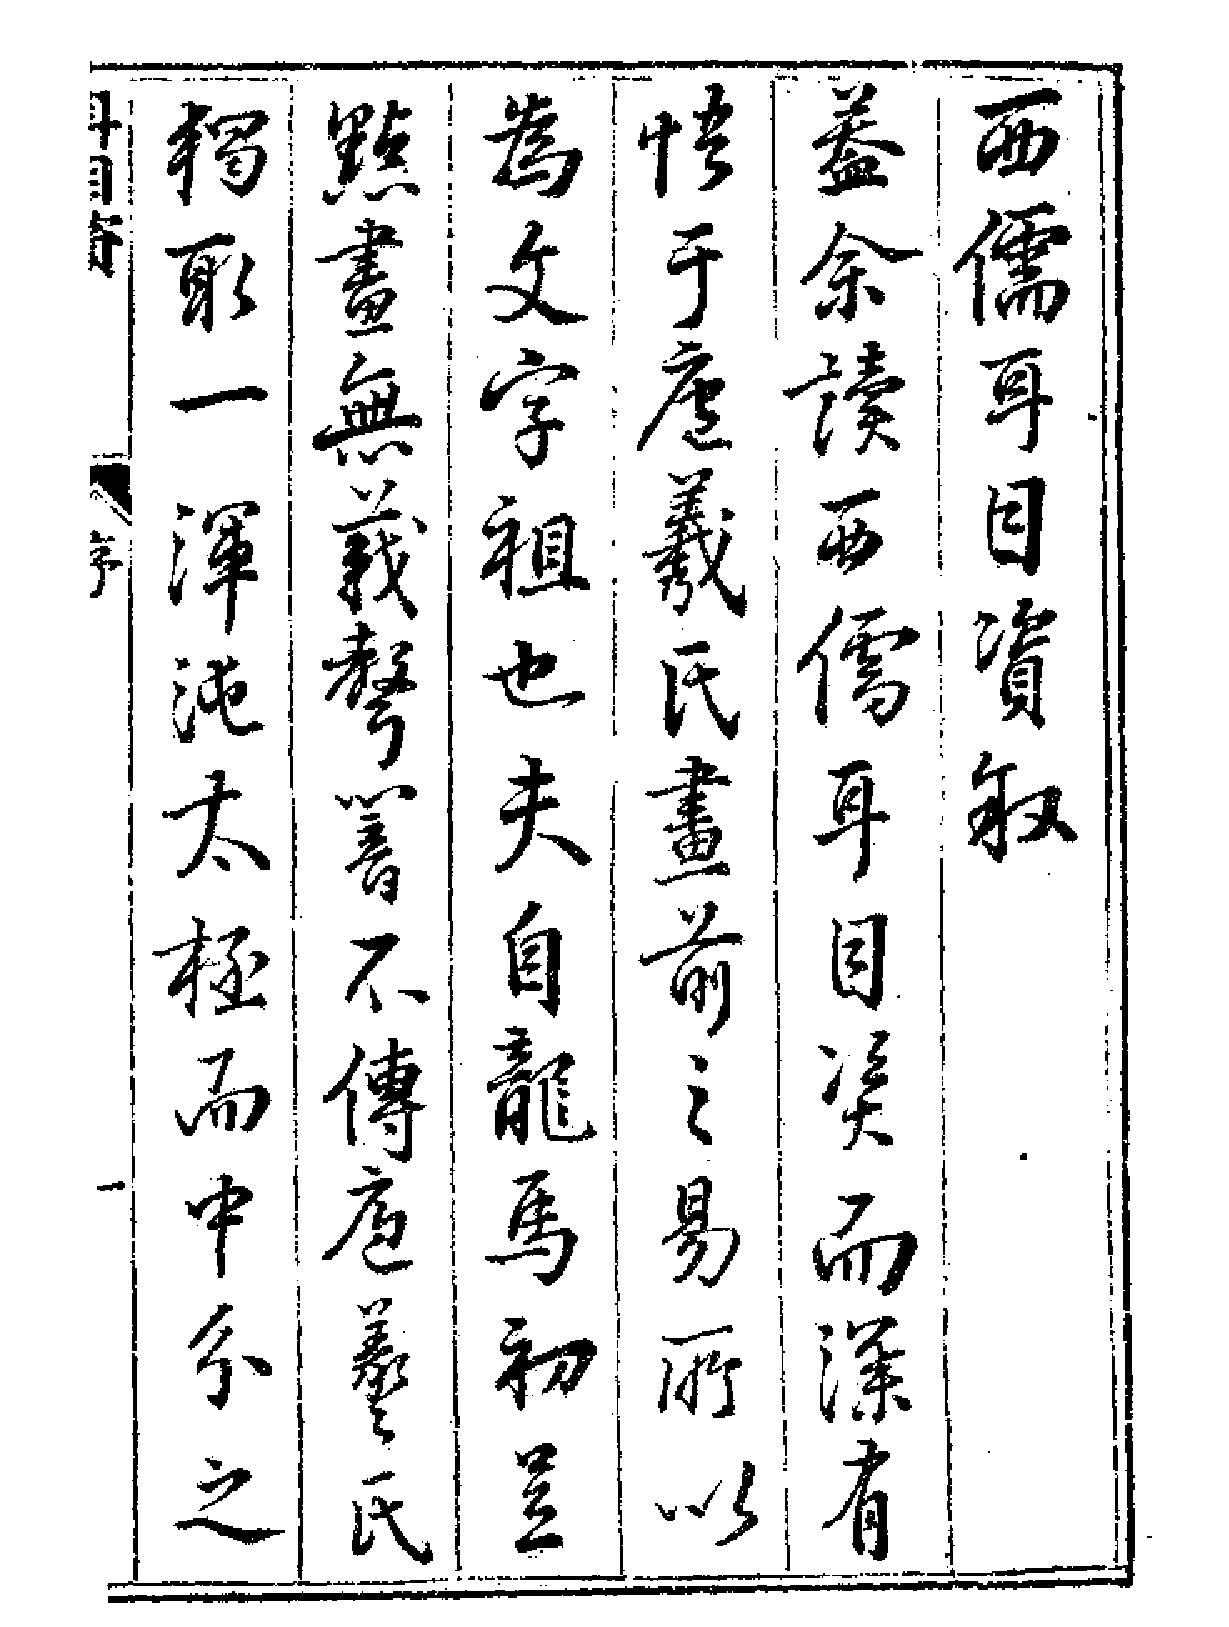 西儒耳目資敘
葢余讀西儒耳目資而深有
悟于庖羲氏畫前之易所以
為文字祖也夫自龍馬初呈
點畫無義聲響不傳庖羲氏
獨取一渾沌太極而中分之
耳目資
序
一